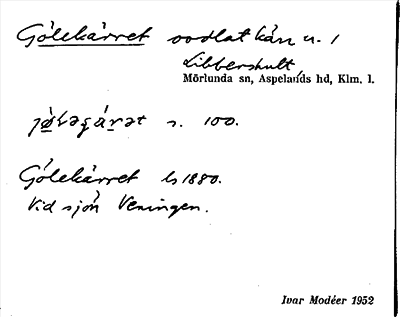 Gölekärret oodlat kärr n. 1
Libbershult
Mörlunda sn, Aspelands hd, Klm. l.
s. 100.
Gölekärret ls 1880.
Vid sjön Versingen.
Ivar Modéer 1952